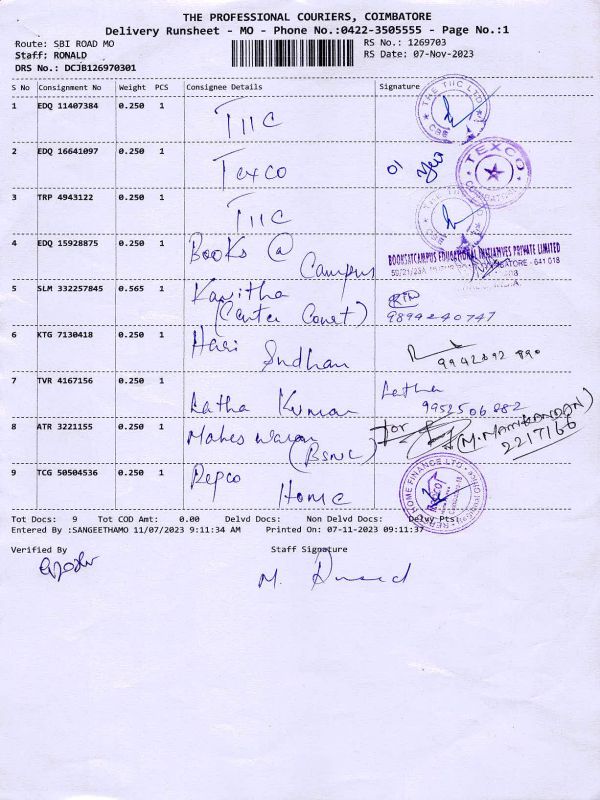 THE PROFESSIONAL COURIERS, COIMBATORE
Delivery Runsheet - MO - Phone No.:0422-3505555 - Page No.:1
Route: SBI ROAD MO RS No.: 1269703
Staff: RONALD RS Date: 07-Nov-2023
DRS No.: DCJB126970301
S No Consignment No Weight PCS Consignee Details Signature
1 EDQ 11407384 0.250 1 TIIC THE TIIC LTD CBE
2 EDQ 16641097 0.250 1 Texco 01 TEXCO COIMBATORE
3 TRP 4943122 0.250 1 TIIC
4 EDQ 15928875 0.250 1 Books @ Campus BOOKSATCAMPUS EDUCATIONAL INITIATIVES PRIVATE LIMITED
COIMBATORE - 641 018
5 SLM 332257845 0.565 1 Kavitha (Center Court) 9894240747
6 KTG 7130418 0.250 1 Hari Sudhan
7 TVR 4167156 0.250 1 Latha Kumar Latha 9952506882
8 ATR 3221155 0.250 1 Maheswaran (BSNL) for (M.MANIKANDAN) 2217166
9 TCG 50504536 0.250 1 Repco Home REPCO HOME FINANCE LTD
Tot Docs: 9 Tot COD Amt: 0.00 Delvd Docs: Non Delvd Docs: Delvy Pts:
Entered By :SANGEETHAMO 11/07/2023 9:11:34 AM Printed On: 07-11-2023 09:11:37
Verified By Staff Signature